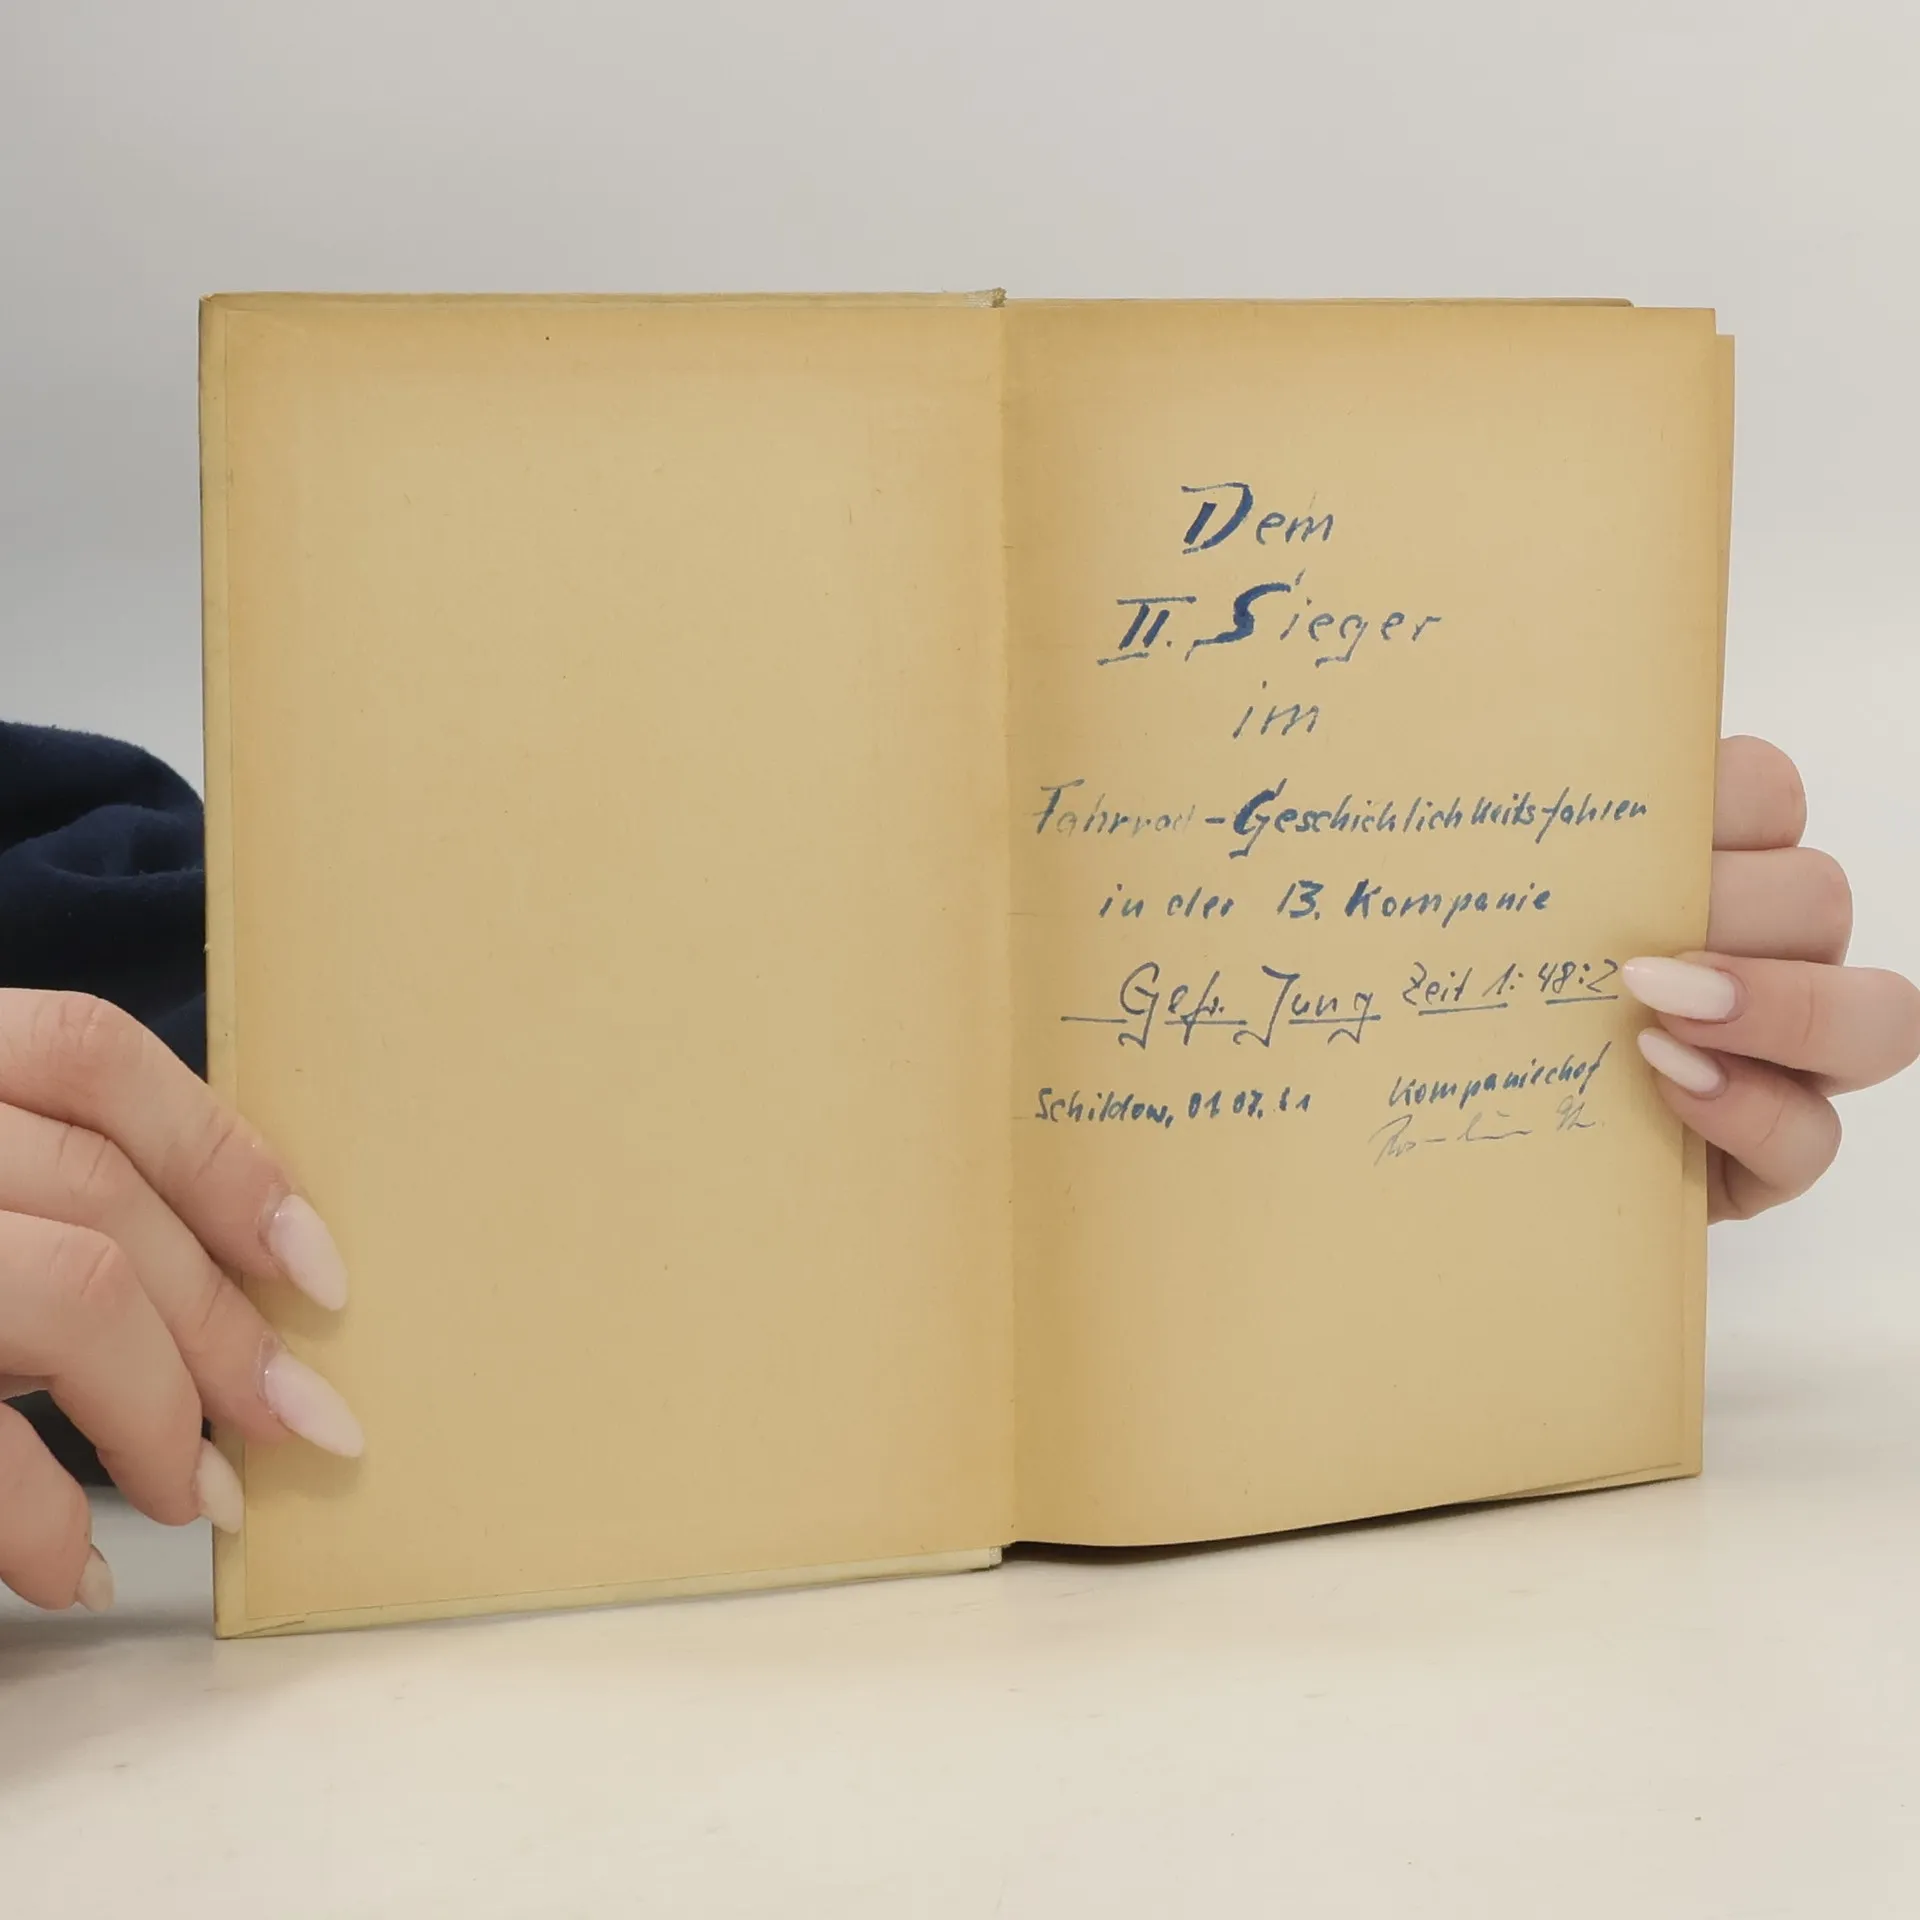 Dem
II. Sieger
im
Fahrrad-Geschicklichkeitsfahren
in der 13. Kompanie
Gefr. Jung Zeit 1:48:2
Schildow, 01 07. Kompaniechef